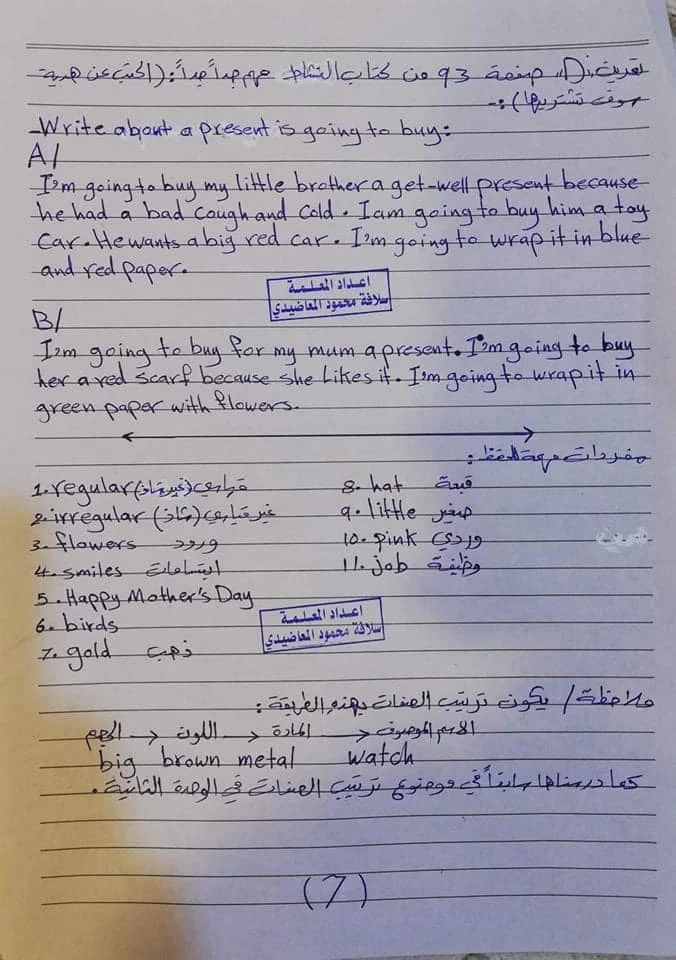 تمرين D، صفحة 93 من كتاب النشاط مهم جداً جداً: (اكتب عن هدية
سوف تشتريها):-
-Write about a present is going to buy:
A/
I'm going to buy my little brother a get-well present because
he had a bad cough and cold. I am going to buy him a toy
car. He wants a big red car. I'm going to wrap it in blue
and red paper.
اعداد المعلمة
سلافة محمود المعاضيدي
B/
I'm going to buy for my mum a present. I'm going to buy
her a red scarf because she likes it. I'm going to wrap it in
green paper with flowers.
مفردات مهمة للحفظ:
1. regular قياسي (غير شاذ) 8. hat قبعة
2. irregular غير قياسي (شاذ) 9. little صغير
3. flowers ورود 10. pink وردي
4. smiles ابتسامات 11. job وظيفة
5. Happy Mother's Day
6. birds
7. gold ذهب
اعداد المعلمة
سلافة محمود المعاضيدي
ملاحظة/ يكون ترتيب الصفات بهذه الطريقة:
الاسم الموصوف ← المادة ← اللون ← الحجم
big brown metal watch
كما درسناها سابقاً في موضوع ترتيب الصفات في الوحدة الثانية.
(7)